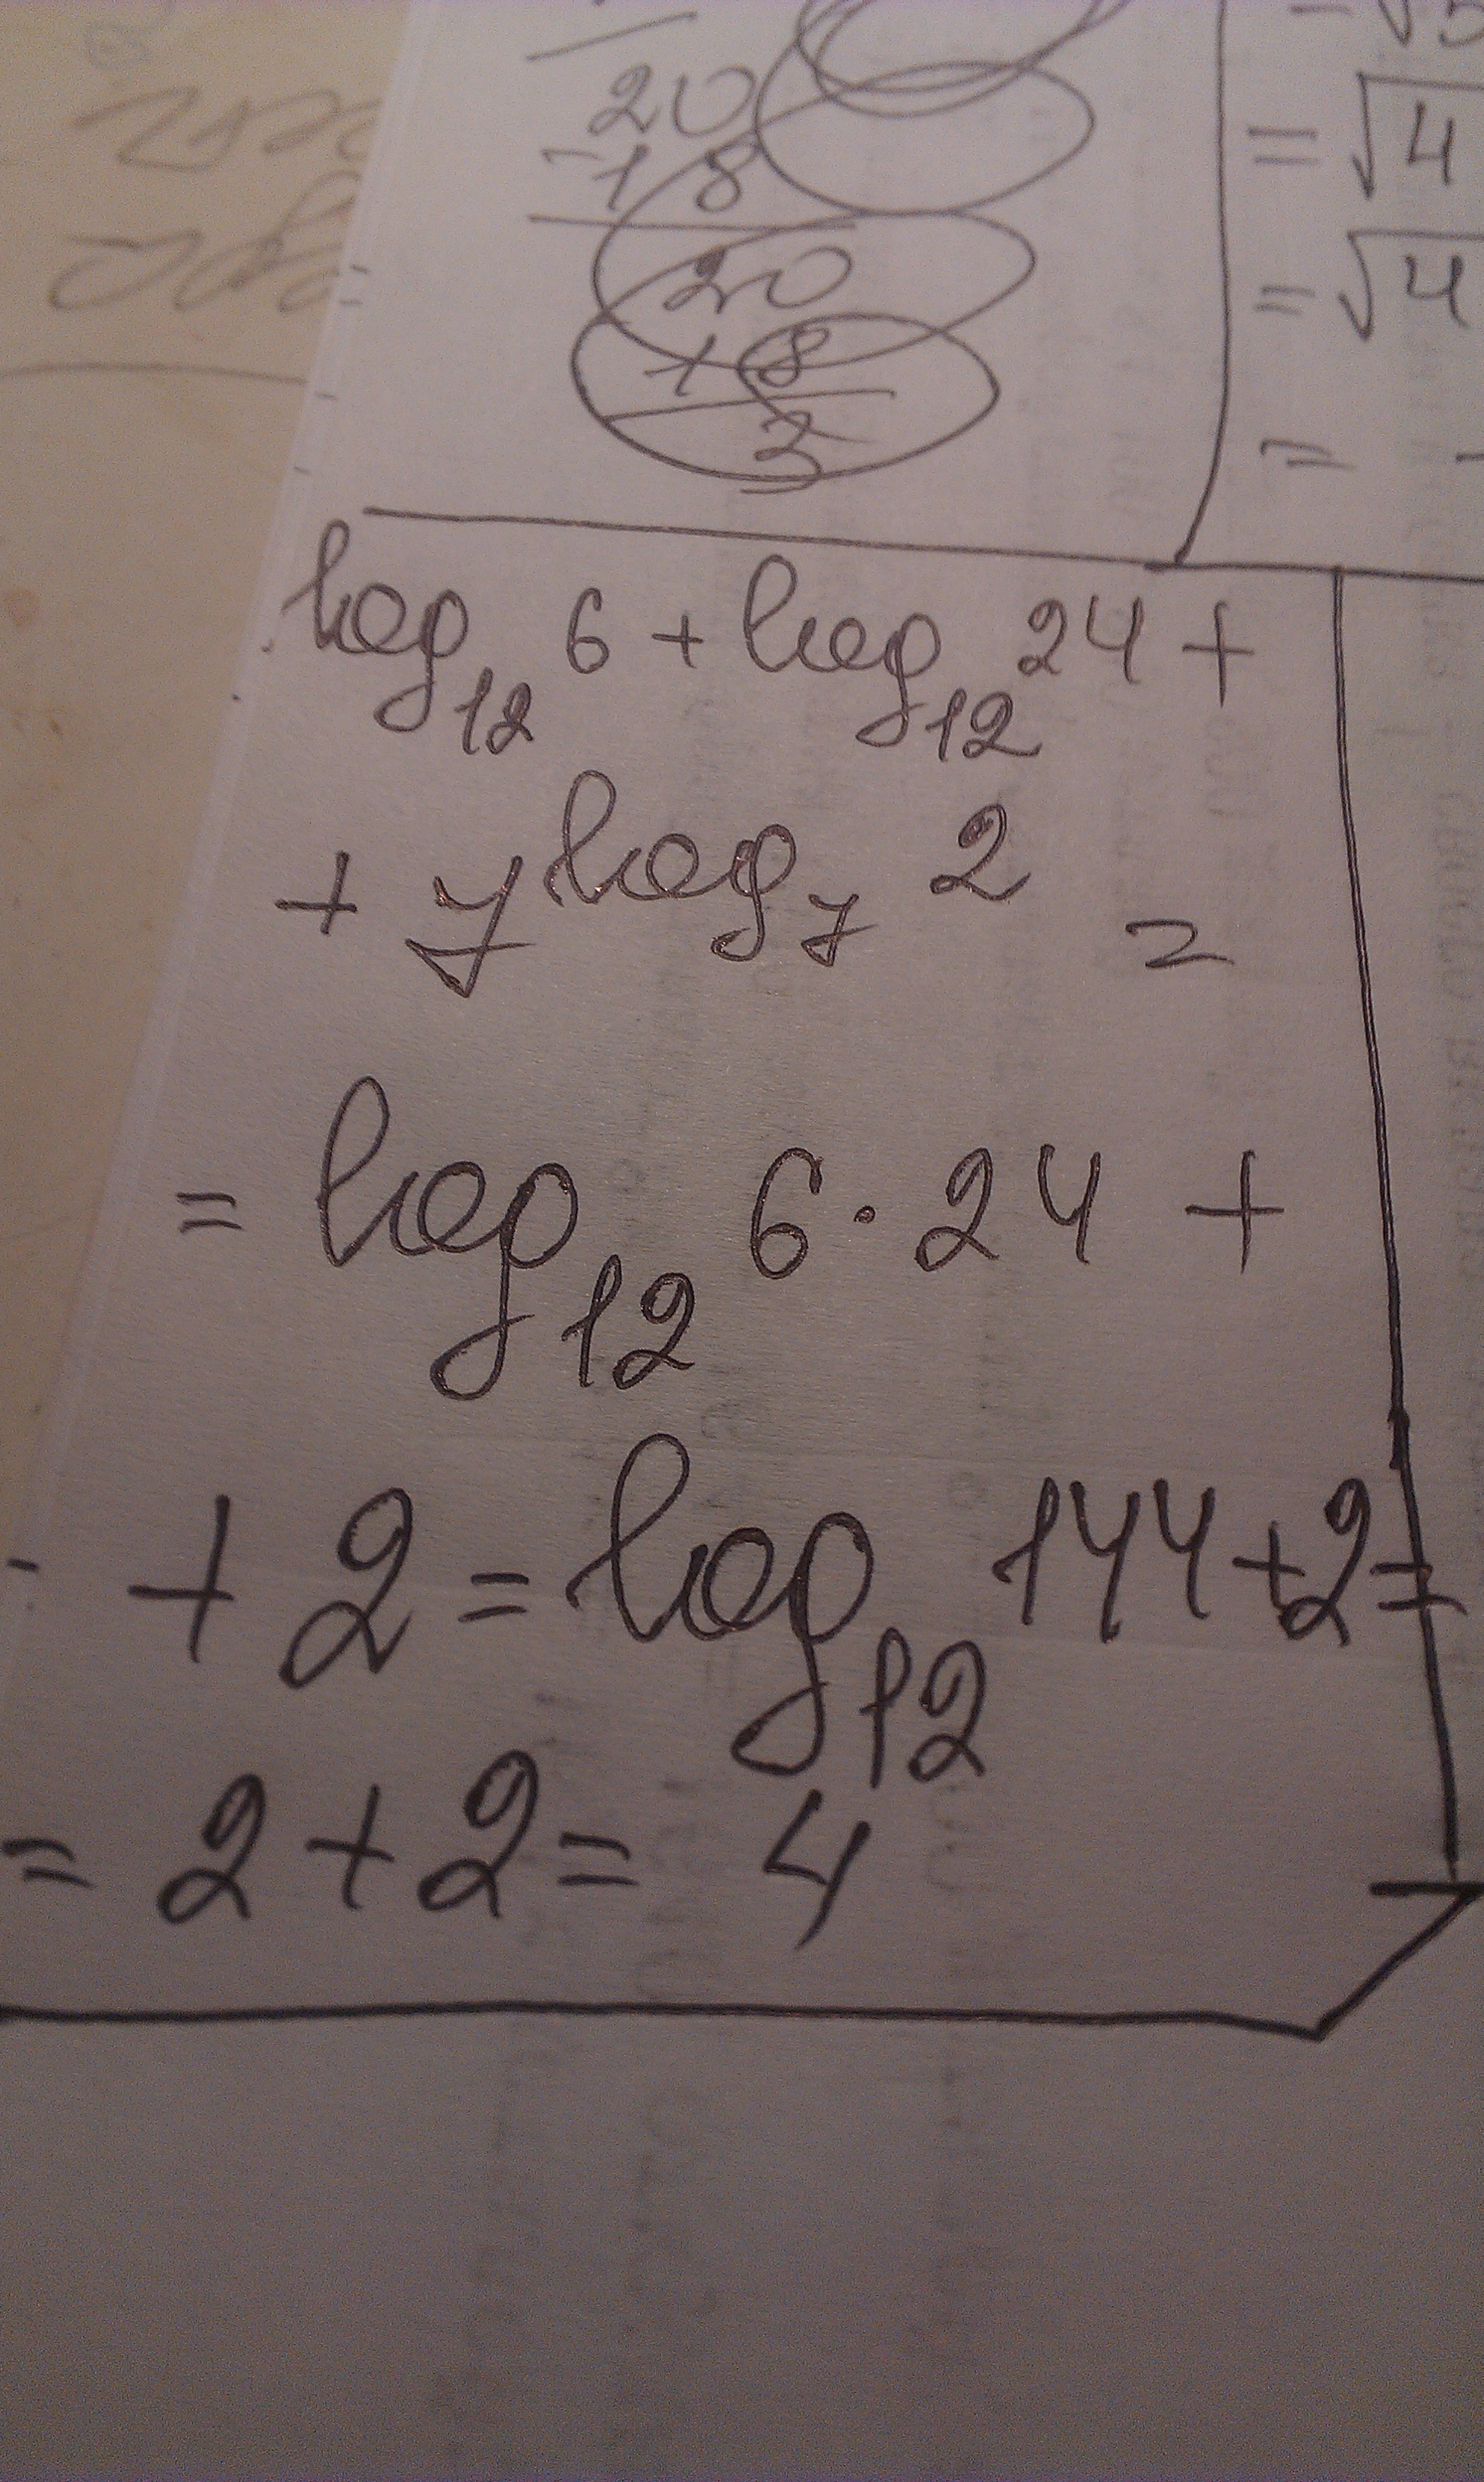 20
-18
20
18
2
= √4
= √4
=
log₁₂ 6 + log₁₂ 24 +
+ 7^(log₇ 2) =
= log₁₂ 6·24 +
+ 2 = log₁₂ 144 + 2 =
= 2 + 2 = 4